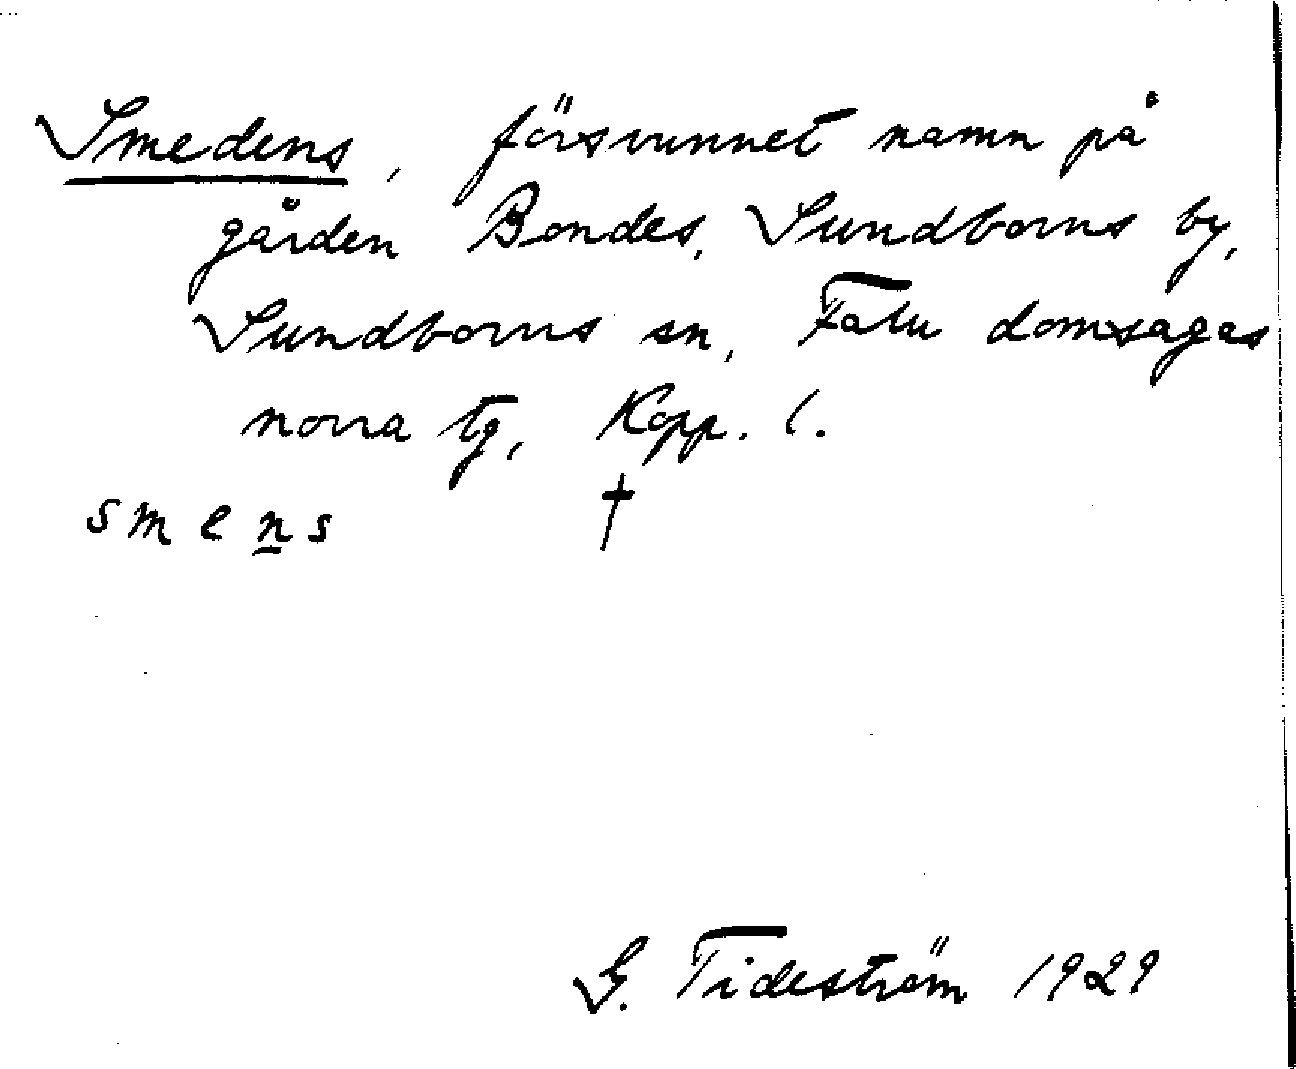 Smedens, försvunnet namn på
gården Bondes, Sundborns by,
Sundborns sn, Falu domsagas
norra tg, Kopp. l.
smens †
G. Tideström 1929